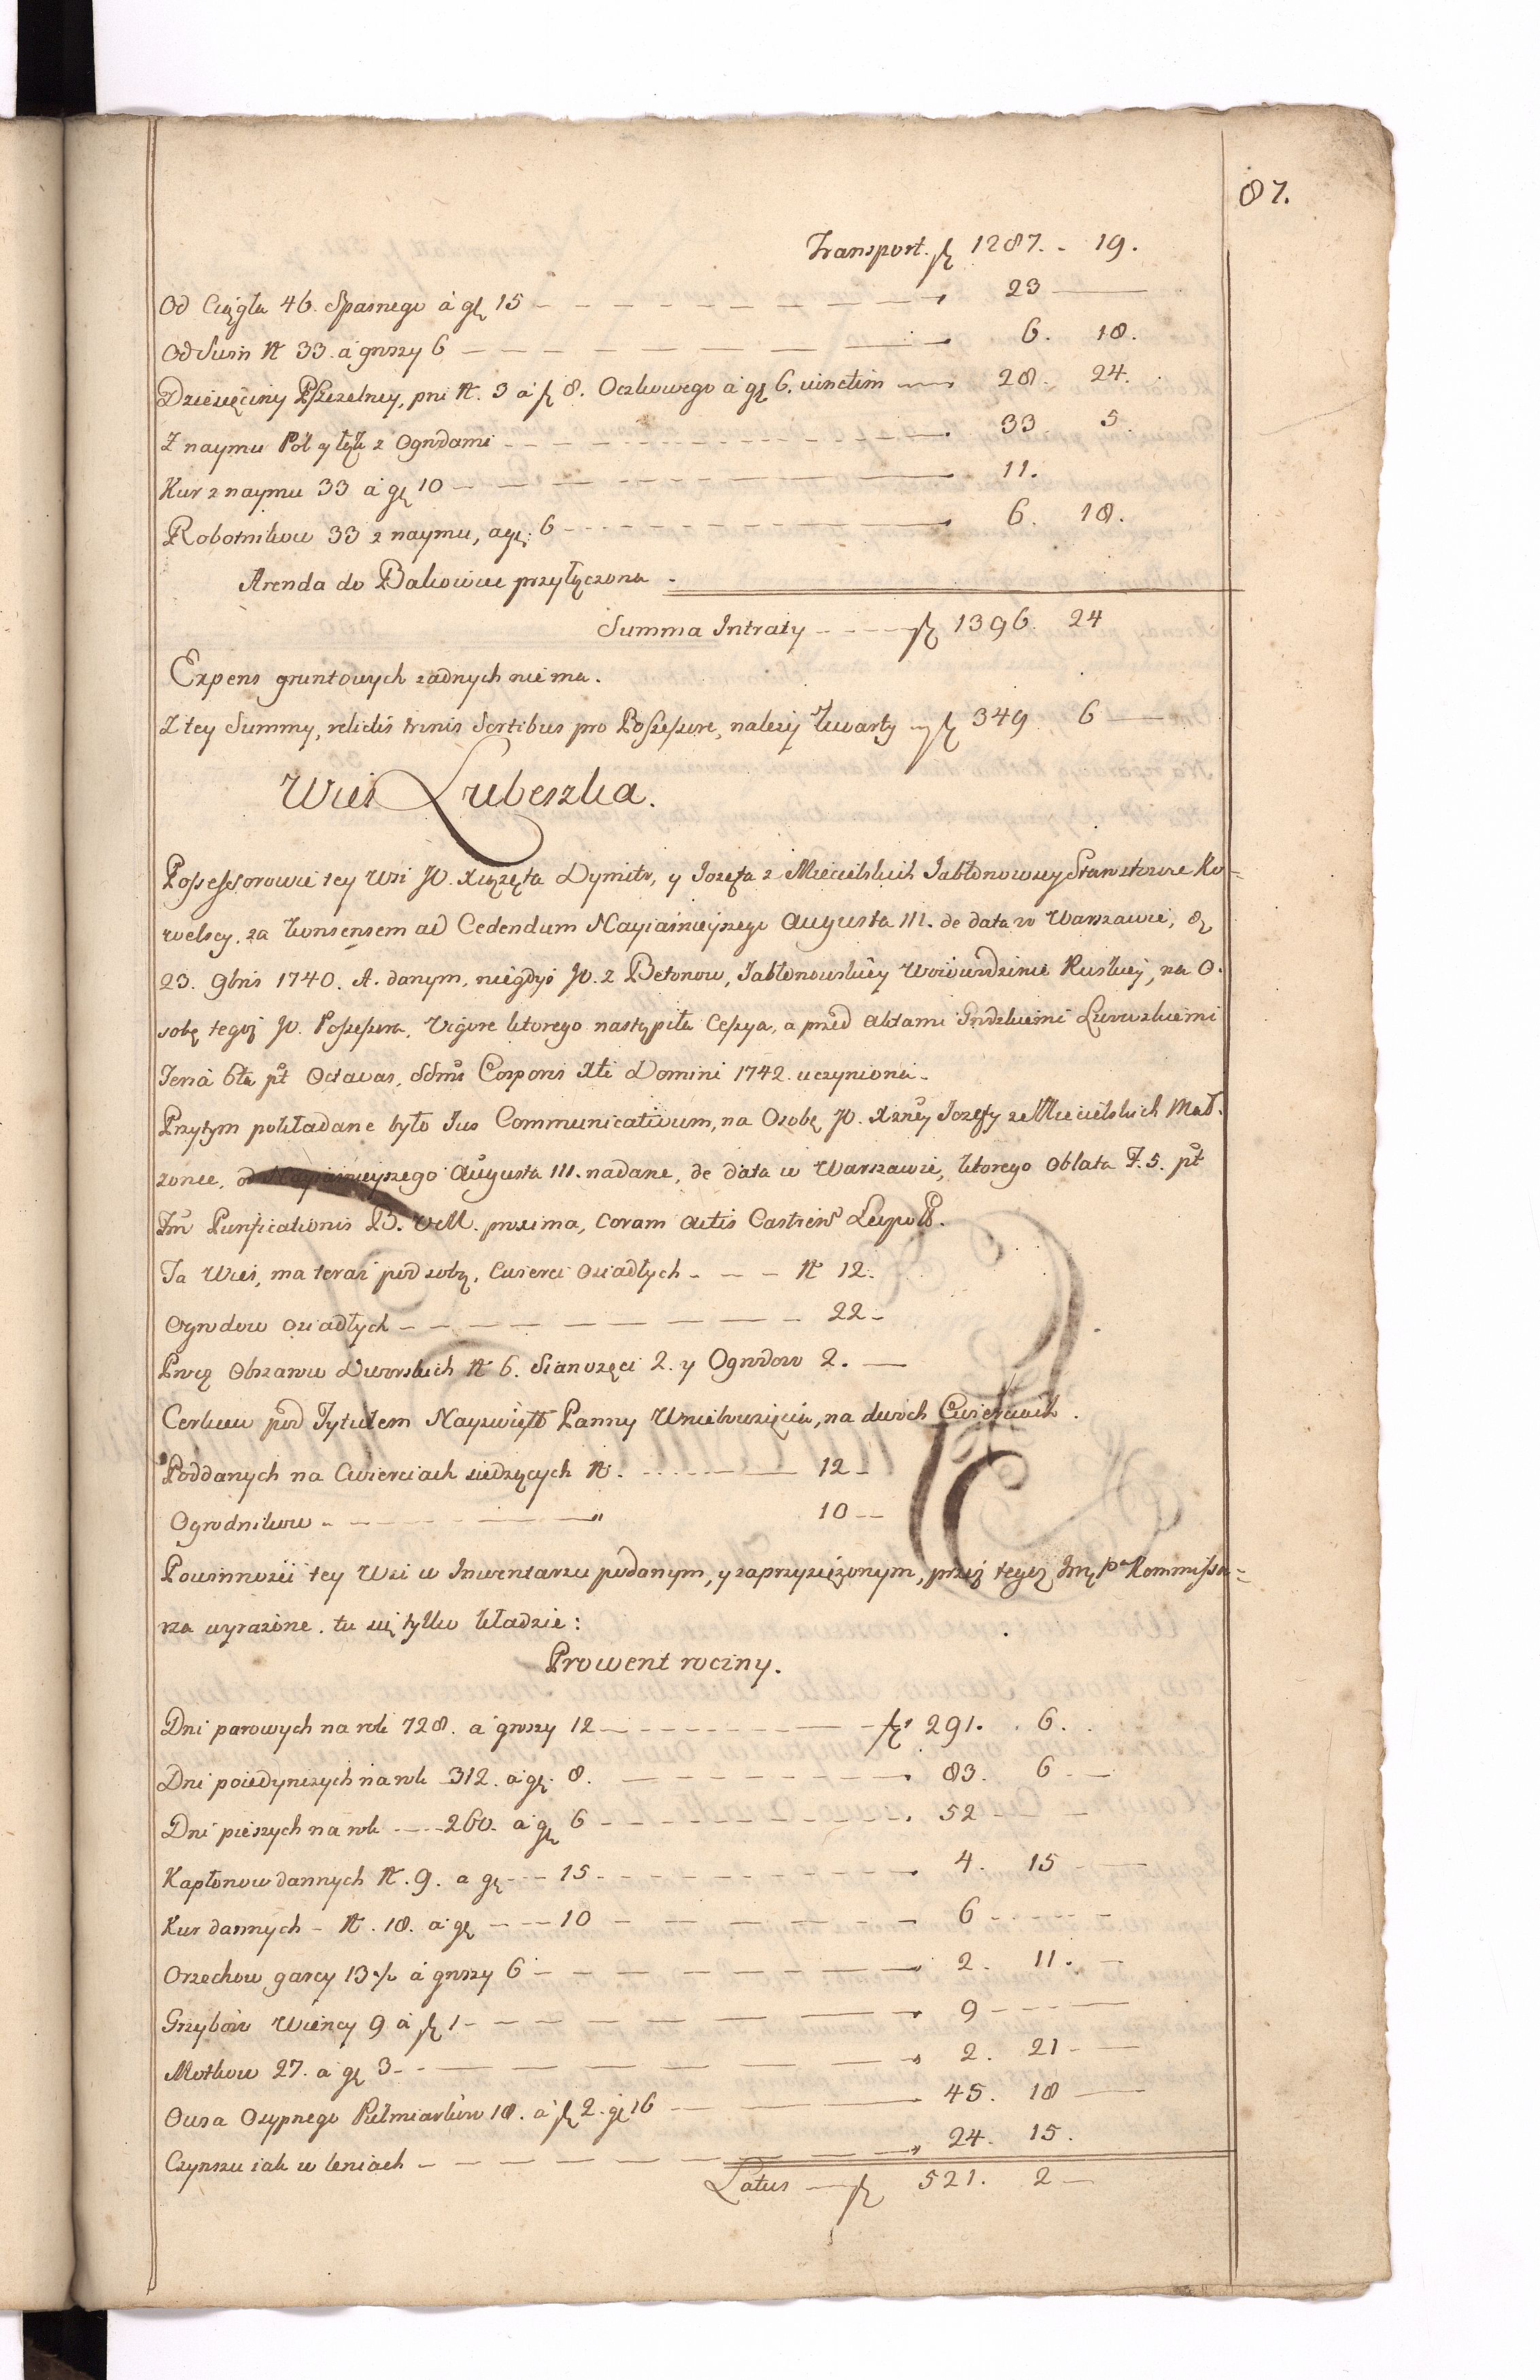 87.
Transport. fl 1287. - 19.
Od Ciągła 46. Spasnego à gł 15 - - - 23 -
Od Suśn N 33. à groszy 6 - - - 6. 18.
Dziesięciny Pszczelney, pni N. 3 à fl 8. Oczkowego à gł 6. vinctim - 28. 24.
Z naymu Pól y łąk z Ogrodami - - - 33 5.
Kur z naymu 33 à gł 10 - - - 11.
Robotnikow 33 z naymu, a gł: 6 - - - 6. 18.
Arenda do Bakowiec przyłączona -
Summa Intraty - - - fl 1396. 24
Expens gruntowych zadnych nie ma.
Z tey Summy, relictis trinis Sortibus pro Possessore, nalezy kwarty - fl 349 6 -
Wieś Lubeszka.
Possessorowie tey Wsi JO. Xiążęta Dymitr, y Jozefa z Mielskich Jabłonowscy Starostowie Ko-
welscy, za konsensem ad Cedendum Nayiaśnieyszego Augusta III. de data w Warszawie, d
23. 9bris 1740. A. danym, niegdyś JO. z Betonow, Jabłonowskiey Woiewodzinie Ruskiey, na O-
sobę tegoż JO. Possessora. Vigore ktorego nastąpiła Cessya, a przed Aktami Grodzkiemi Lwowskiemi
Feria 6ta pt Octavas, SSmi Corporis Xti Domini 1742. uczyniona.
Przytym pokładane było Jus Communicativum, na Osobę JO. Xżney Jozefy z Mielskich Mał-
zonce, od Nayiaśnieyszego Augusta III. nadane, de data w Warszawie, ktorego Oblata F. 5. pt
Fm Purificationis B. V. M. proxima, coram Actis Castren Leopol.
Ta Wieś, ma teraz pod sobą, Cwierci Osiadłych - - - N 12.
Ogrodow osiadłych - - - 22 -
Procz Obszarow Dworskich N 6. Sianozęci 2. y Ogrodow 2. -
Cerkiew pod Tytułem Nayswięt Panny Wniebowzięcia, na dwoch Cwierciach.
Poddanych na Cwierciach siedzących N. - - - 12 -
Ogrodnikow - - - " 10 - -
Powinności tey Wsi w Inwentarzu podanym, y zaprzysiężonym, przez tegoż Jmć Pa Kommissa-
rza wyrażone. tu się tylko kładzie:
Prowent roczny.
Dni parowych na rok 728. a groszy 12 - - - fl 291. 6.
Dni poiedynczych na rok 312. a gł. 8. - - - 83. 6 -
Dni pieszych na rok - - 260. a gł 6 - - - 52 -
Kapłonow dannych N. 9. a gł - - 15 - - - 4. 15 -
Kur dannych - N. 18. a gł - - 10 - - - 6 - -
Orzechow garcy 13 ½ à groszy 6 - - - 2. 11. -
Grzybow Wieńcy 9 à fl 1 - - - 9 - -
Motkow 27. a gł 3 - - - 2. 21 - -
Owsa Osypnego Pułmiarkow 18. a fl 2. gł 16 - - - 45. 18 -
Czynszu iak w leniach - - - 24. 15.
Latus - fl 521. 2 -